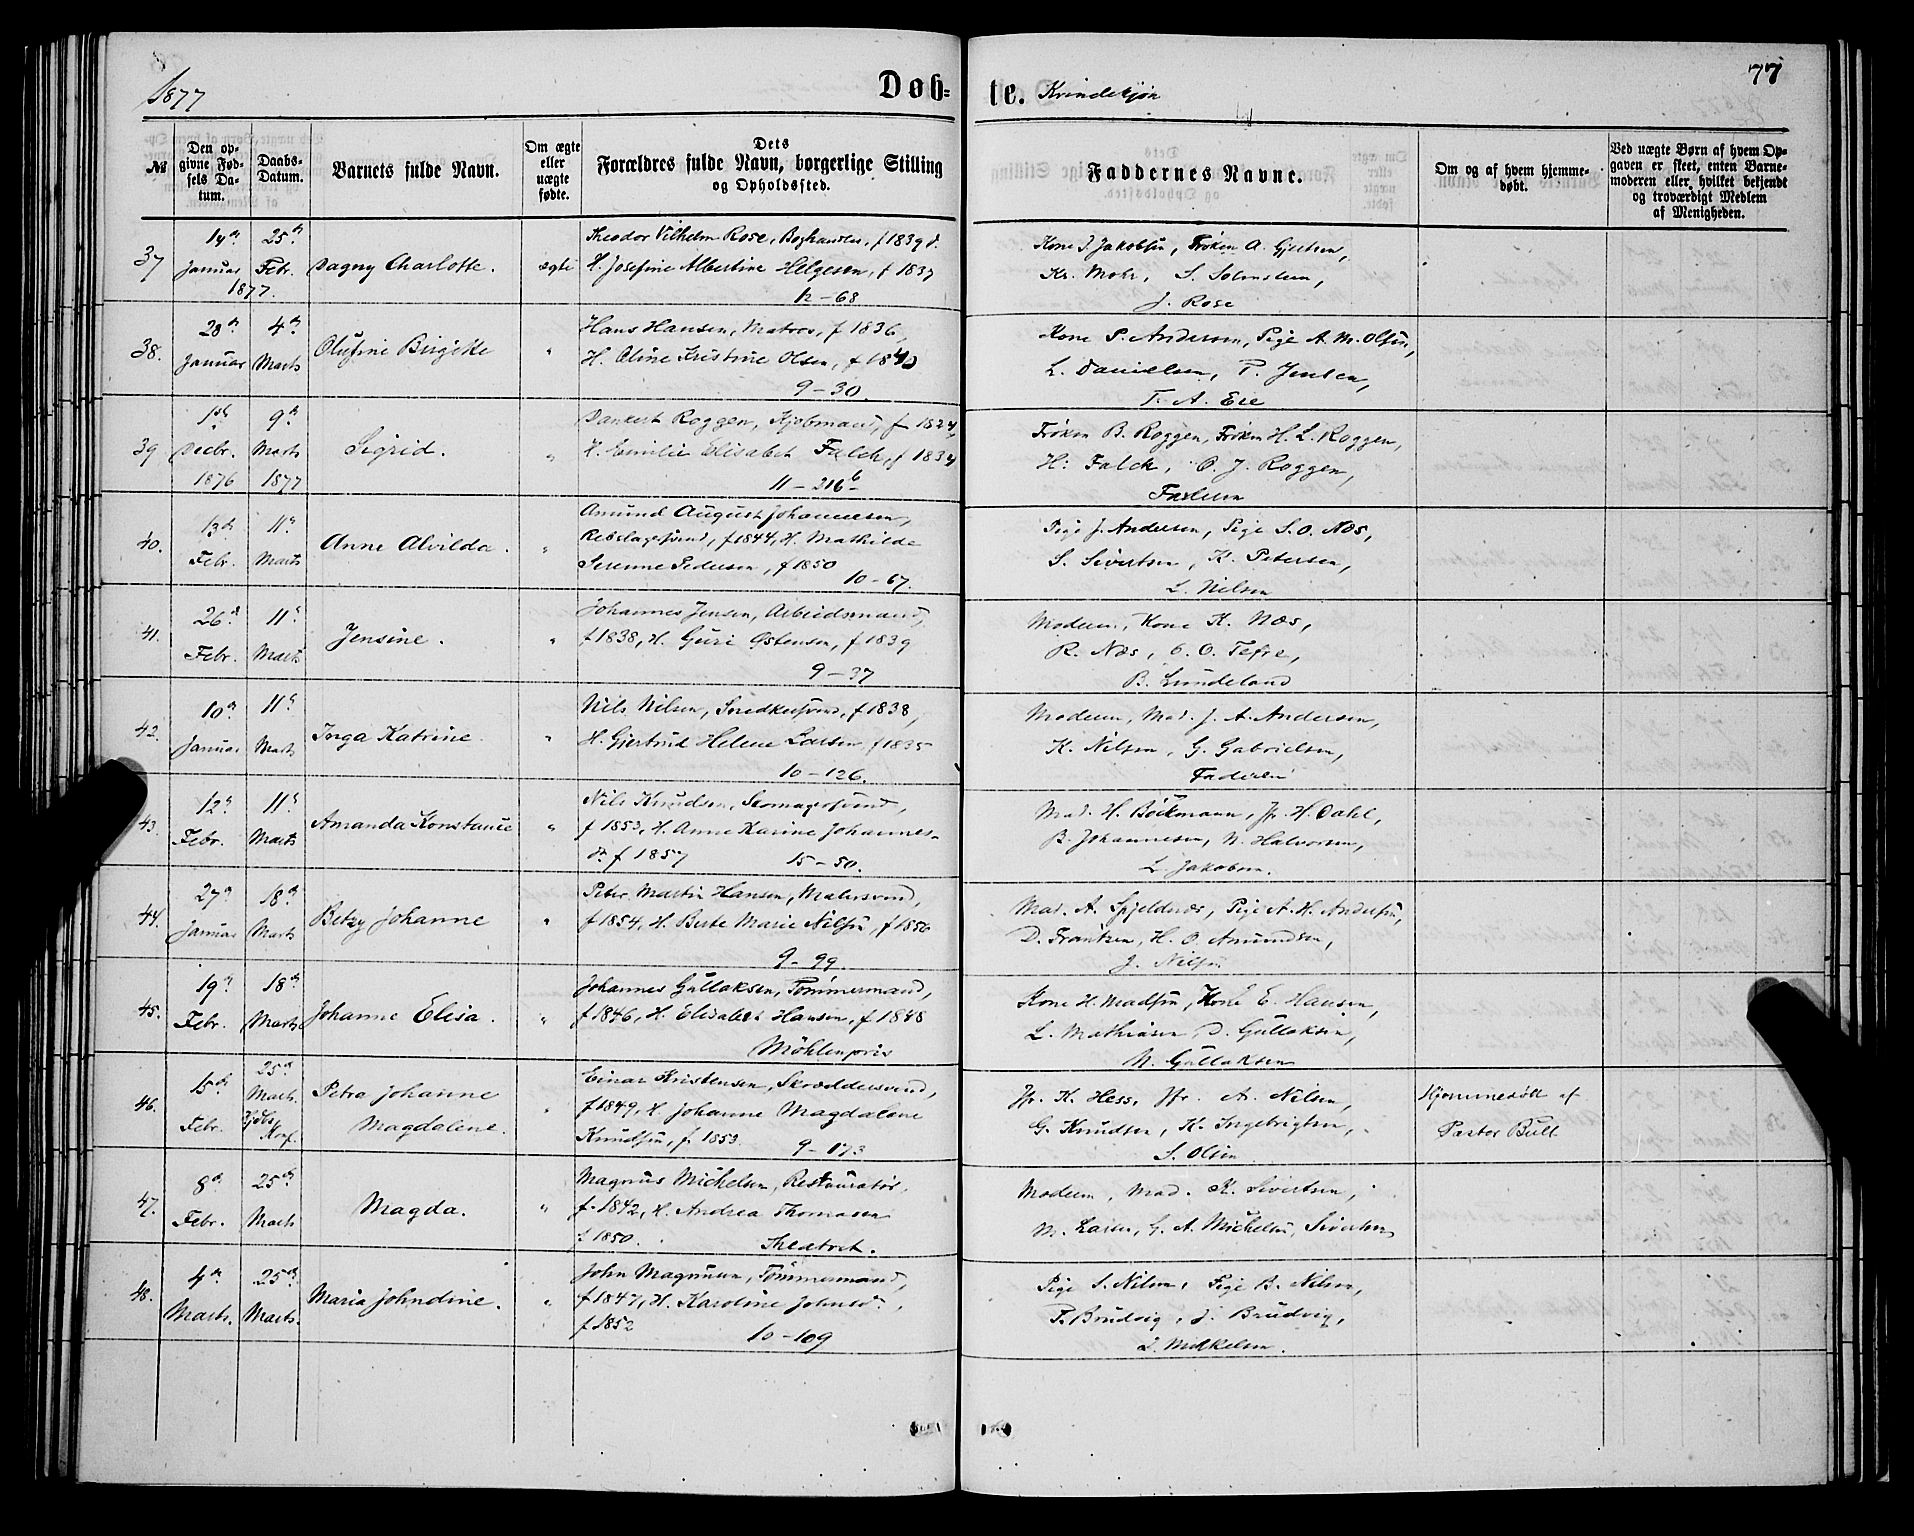 1877
Døb=
te. Kvindekjøn
77
№
Den op-
givne Fød-
sels Da-
tum.
Daabs-
Datum.
Barnets fulde Navn.
Om ægte
eller
uægte
fødte.
Dets
Forældres fulde Navn, borgerlige Stilling
og Opholdssted.
Faddernes Navne.
Om og af hvem hjemme-
døbt.
Ved uægte Børn af hvem Op-
gaven er skeet, enten Barne-
moderen eller hvilket bekjendt
og troværdigt Medlem
af Menigheden.
37
14de Januar 1877.
25de Febr.
Dagny Charlotte.
ægte
Theodor Vilhelm Rose, Boghandler, f 1839 &
H. Josefine Albertine Helgesen, f 1837
12-68
Kone J. Jakobsen, Frøken A. Gjertsen,
Kr. Mohr, S.
J. Rose
38.
28de Januar
4de Marts
Olufine Birgitte
"
Hans Hansen, Matros, f 1836,
H. Oline Kristine Olsen, f 1840
9-30.
Kone P. Andersen, Pige A. M. Olsen,
L. Danielsen, P. Jensen,
T. A.
39
1ste Decbr. 1876
9de Marts 1877
Sigrid.
"
Dankert Roggen, Kjøbmand, f 1824,
H. Emilie Elisabet Falck, f 1834
11-216b
Frøken B. Roggen, Frøken H. L. Roggen,
H. Falck, O. J. Roggen,
Faderen
40.
13de Febr.
11te Marts
Anne Alvilda.
"
Amund August Johannesen,
Rebslagersvend, f 1844, H. Mathilde
Serenne Pedersen, f 1850
10-67.
Pige J. Andersen, Pige S. O. Næs,
S. Sivertsen, K. Petersen,
L. Nilsen
41.
26de Febr.
11te Marts
Jensine.
"
Johannes Jensen, Arbeidsmand,
f 1838, H. Guri Østensen, f 1839
9-37
Moderen, Kone K. Næs,
R. Næs, O. O. Tefre,
B. Lundeland
42.
10de Januar
11te Marts
Inga Katrine.
"
Nils Nilsen, Snedkersvend, f 1838,
H. Gjertrud Helene Larsen, f 1835
10-126.
Moderen, Mad. J. A. Andersen,
K. Nilsen, G. Gabrielsen,
Faderen
43.
12te Febr.
11te Marts
Amanda Konstance
"
Nils Knudsen, Skomagersvend,
f 1853, H. Anne Karine Johannes-
dr. f 1857 15-50.
Mad. H. Böckmann, Jfr. H. Dahl,
B. Johannesen, N. Halvorsen,
L. Jakobsen.
44.
27de Januar
18de Marts
Betzy Johanne
"
Peter Martin Hansen, Malersvend,
f 1854, H. Berte Marie Nilsen, f 1850
9-99.
Mad. A. Spjeldnæs, Pige A. H. Andersen,
D. Frantzen, H. O. Amundsen,
J. Nilsen
45.
19de Febr.
18de Marts
Johanne Elisa.
"
Johannes Gullaksen, Tømmermand,
f 1846, H. Elisabet Hansen, f 1848
Møhlenpris
Kone H. Madsen, Kone E. Hansen,
L. Mathiasen D. Gullaksen,
N. Gullaksen
46.
15de Febr.
25de Marts. Hjdbs. Konf.
Petra Johanne
Magdalene.
"
Einar Kristensen, Skræddersvend,
f 1849, H. Johanne Magdalene
Knudsen, f 1853. 9-173
Jfr. K. Hess, Jfr. A. Nilsen,
G. Knudsen, K. Ingebrigtsen,
S. Olsen
Hjemmedøbt af
Pastor Bull
47.
8de Febr.
25de Marts
Magda.
"
Magnus Michelsen, Restauratør,
f. 1842, H. Andrea Thomasen
f 1850. Theatret.
Moderen, Mad. K. Sivertsen,
M. Larsen, G. A. Michelsen, Sivertsen
48.
4de Marts.
25de Marts.
Maria Johndine.
"
John Magnusen, Tømmermand,
f 1847, H. Karoline Johnsdr.,
f 1852 10-109
Pige S. Nilsen, Pige B. Nilsen,
P. Brudvig, J. Brudvig,
L. Mikkelsen.